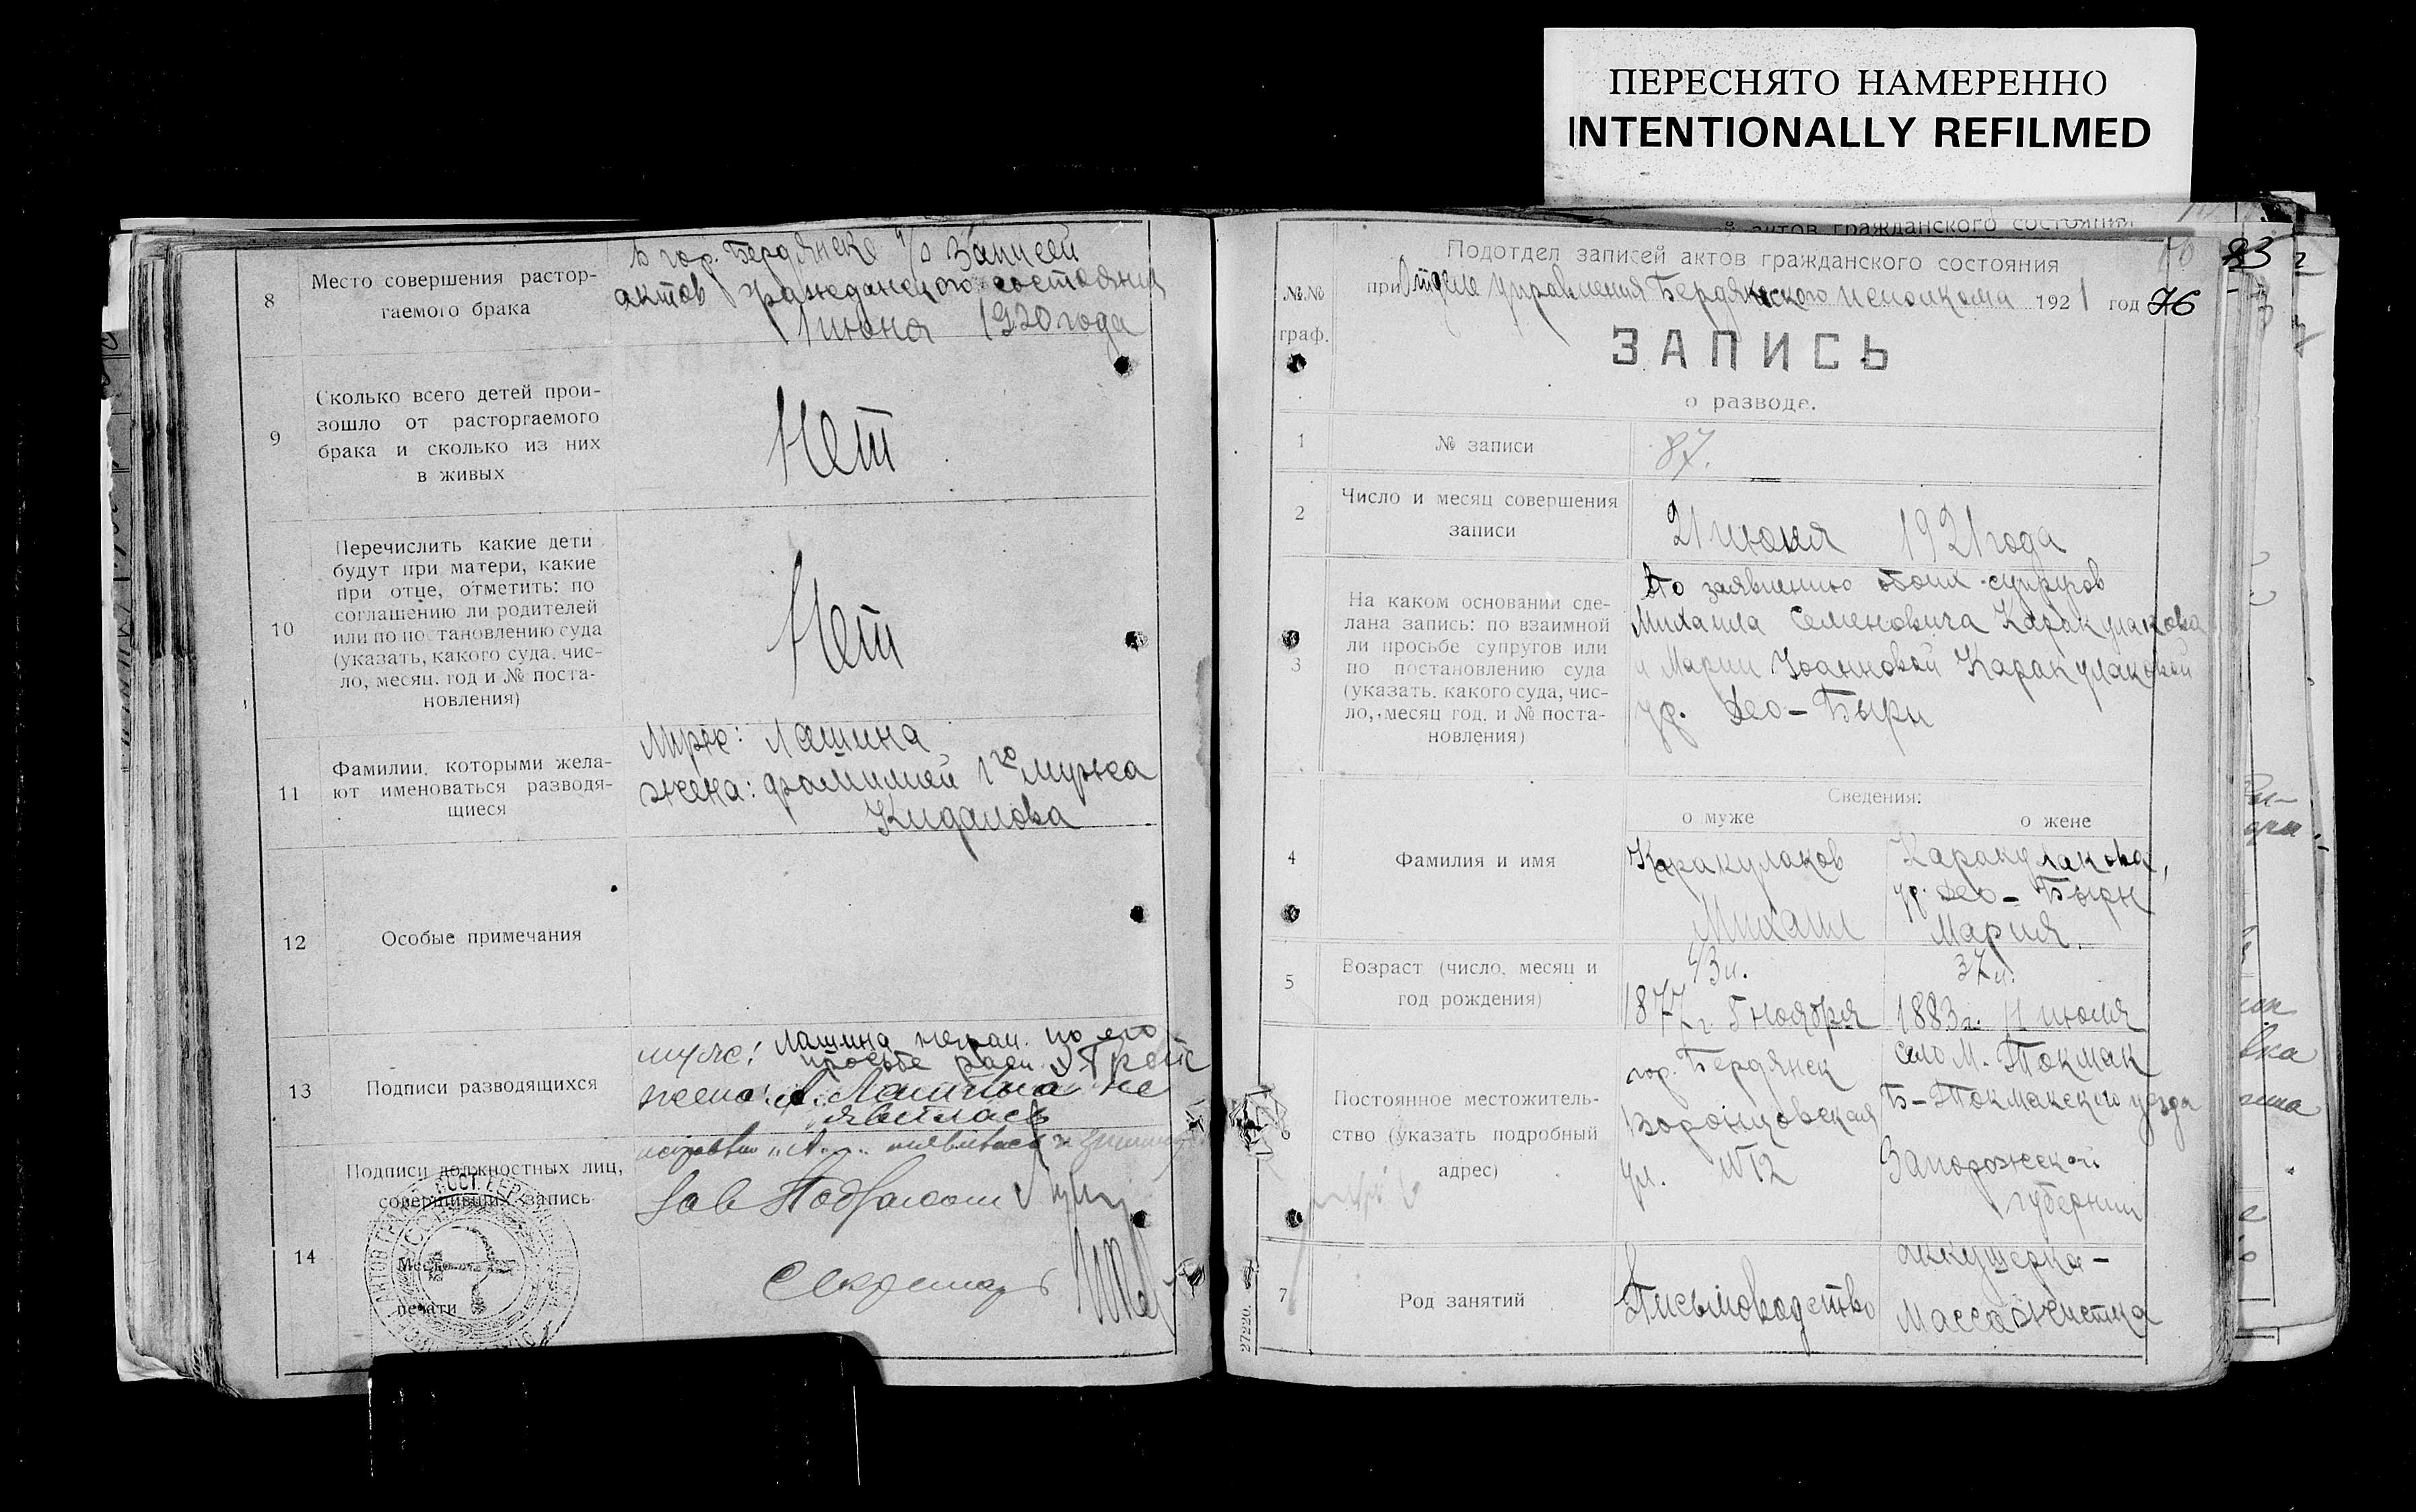 ПЕРЕСНЯТО НАМЕРЕННО
INTENTIONALLY REFILMED
8
Место совершения растор-
гаемого брака
в гор. Бердянске п/о Записей
актов гражданского состояния
1 июня 1920 года
9
Сколько всего детей прои-
зошло от расторгаемого
брака и сколько из них
в живых
Нет
10
Перечислить какие дети
будут при матери, какие
при отце, отметить: по
соглашению ли родителей
или по постановлению суда
(указать, какого суда, чис-
ло, месяц, год и № поста-
новления)
Нет
11
Фамилии, которыми жела-
ют именоваться разводя-
щиеся
Муж: Лашина
жена: фамилией 1го мужа
Кидалова
12
Особые примечания
13
Подписи разводящихся
муж: Лашина неграм. по его
просьбе расп.
жена: А. Лашина не
явилась
14
Подписи должностных лиц,
совершивших запись
Место
печати
Зав Подотделом
Секретарь
актов гражданского состояния
Подотдел записей актов гражданского состояния
93
№№
граф.
при Отделе Управления Бердянского исполкома 1921 год 76
ЗАПИСЬ
о разводе.
1
№ записи
87.
2
Число и месяц совершения
записи
21 июня 1921 года
3
На каком основании сде-
лана запись: по взаимной
ли просьбе супругов или
по постановлению суда
(указать, какого суда, чис-
ло, месяц год, и № поста-
новления)
По заявлению обоих супругов
Михаила Семеновича Каракулакова
и Марии Иоанновой Каракулаковой
ур. Део-Бырн
Сведения:
о муже
о жене
4
Фамилия и имя
Каракулаков
Михаил
Каракулакова,
ур. Део-Бырн
Мария.
5
Возраст (число, месяц и
год рождения)
43 л.
1877 г. ноября
37 л.
1883 г. 11 июля
6
Постоянное местожитель-
ство (указать подробный
адрес)
гор. Бердянск
Воронцовская
ул. №12
село М. Токмак
Б-Токмакского уезда
Запорожской
губернии
7
Род занятий
Письмоводство
аккушерка-
массажистка
27220